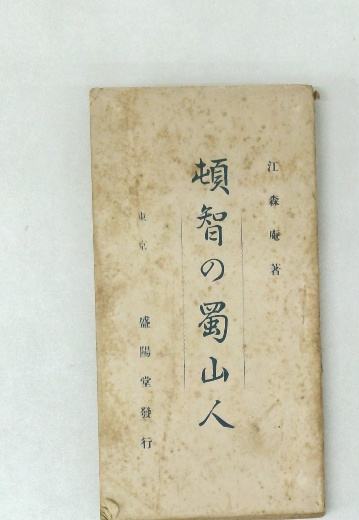 江森庵著
頓智の蜀山人
東京 盛陽堂發行